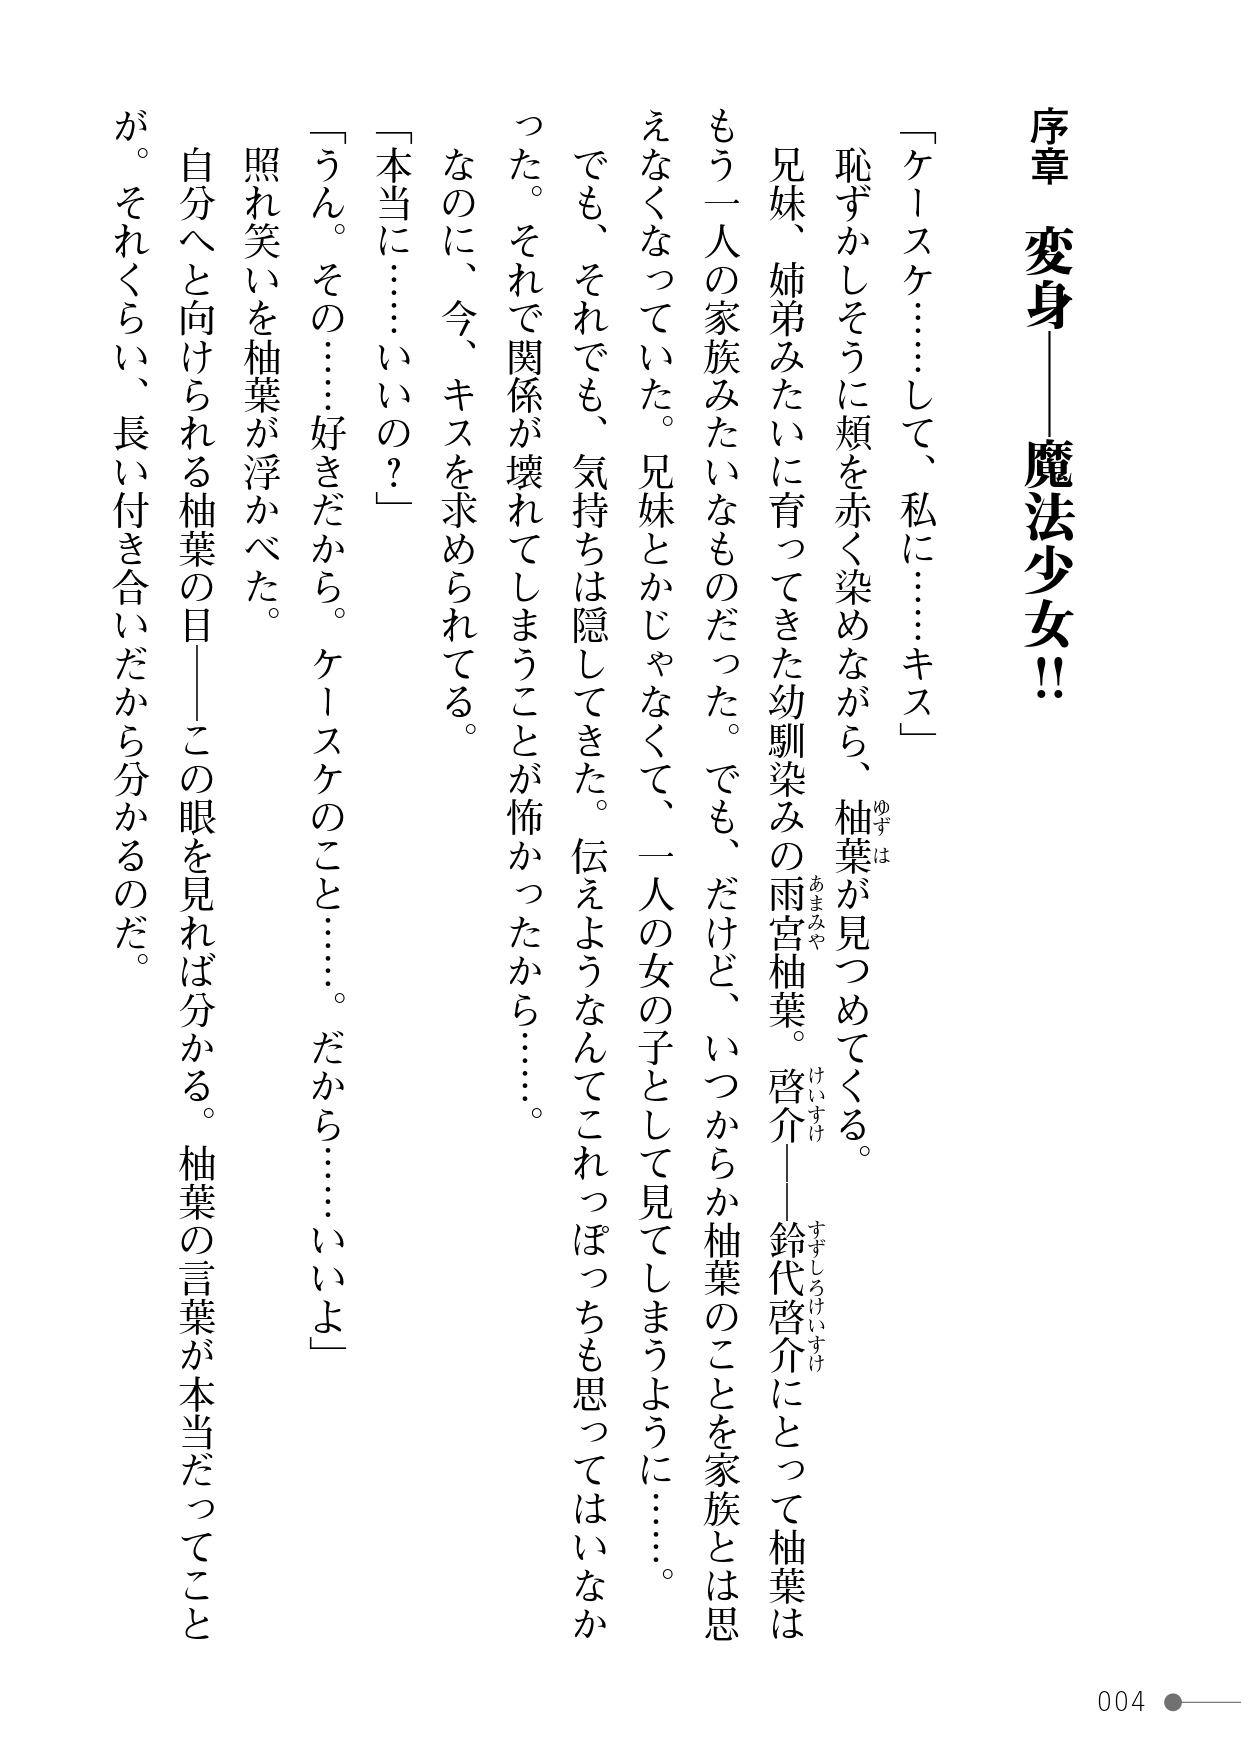 序章　変身――魔法少女!!
「ケースケ……して、私に……キス」
　恥ずかしそうに頬を赤く染めながら、柚葉が見つめてくる。
　兄妹、姉弟みたいに育ってきた幼馴染みの雨宮柚葉。啓介――鈴代啓介にとって柚葉は
もう一人の家族みたいなものだった。でも、だけど、いつからか柚葉のことを家族とは思
えなくなっていた。兄妹とかじゃなくて、一人の女の子として見てしまうように……。
　でも、それでも、気持ちは隠してきた。伝えようなんてこれっぽっちも思ってはいなか
った。それで関係が壊れてしまうことが怖かったから……。
　なのに、今、キスを求められてる。
「本当に……いいの？」
「うん。その……好きだから。ケースケのこと……。だから……いいよ」
　照れ笑いを柚葉が浮かべた。
　自分へと向けられる柚葉の目――この眼を見れば分かる。柚葉の言葉が本当だってこと
が。それくらい、長い付き合いだから分かるのだ。
ゆずは
あまみや
けいすけ
すずしろけいすけ
004